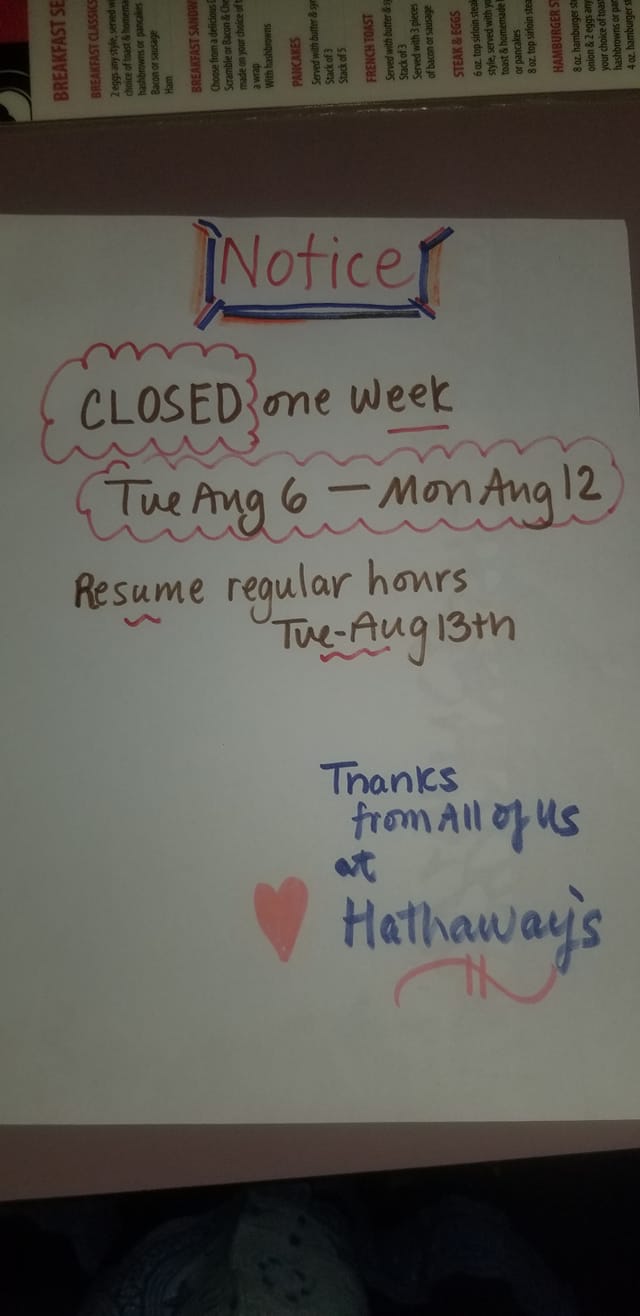 BREAKFAST SE
BREAKFAST CLASSICS
2 eggs any style, served w
choice of toast & homema
hashbrowns or pancakes
Bacon or sausage
Ham
BREAKFAST SANDW
Choose from a delicious
Scramble or bacon & Che
made on your choice of
a wrap
With hashbrowns
PANCAKES
Served with butter & syr
Stack of 3
Stack of 5
FRENCH TOAST
Served with butter & s
Stack of 3
Served with 3 pieces
of bacon or sausage
STEAK & EGGS
6 oz. top sirloin steak
style, served with yo
toast & homemade
or pancakes
8 oz. top sirloin stea
HAMBURGER S
8 oz. hamburger st
onion & 2 eggs any
your choice of toas
hashbrowns or pa
4 oz. hamburger st
Notice
CLOSED one week
Tue Aug 6 — Mon Aug 12
Resume regular hours
Tue-Aug 13th
Thanks
from All of us
at
Hathaway's